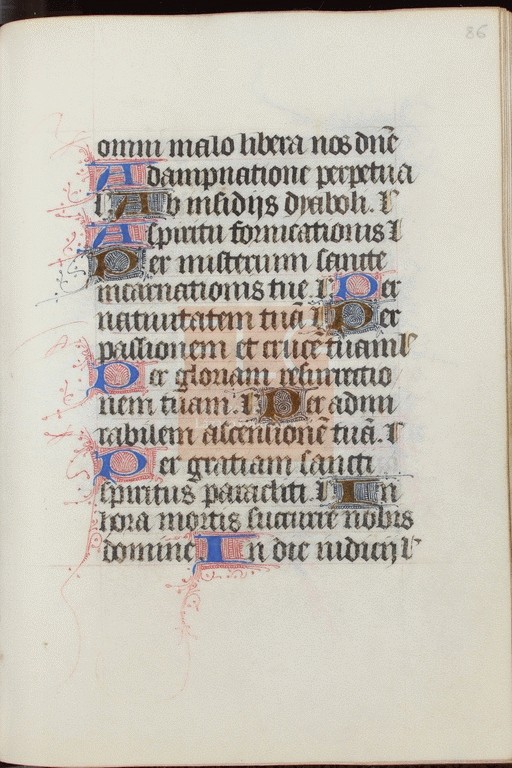 86
omni malo libera nos dn̄e
A dampnatione perpetua
l Ab insidijs dyaboli. l
A spiritu fornicationis l
Per misterium sancte
incarnationis tue. l Per
natiuitatem tuā l Per
passionem et crucē tuam l
Per gloriam resurrectio
nem tuam. l Per admi
rabilem ascensionē tuā. l
Per gratiam sancti
spiritus paracliti. l In
hora mortis succurre nobis
domine In die iudicij l